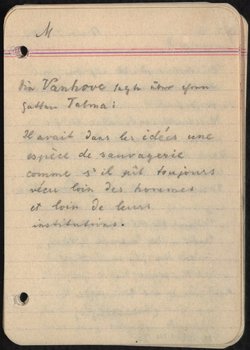 M
Die Vanhove sagte über ihren
Gatten Talma:
Il avait dans les idées une
espèce de sauvagerie
comme s'il eût toujours
vécu loin des hommes
et loin de leurs
institutions.